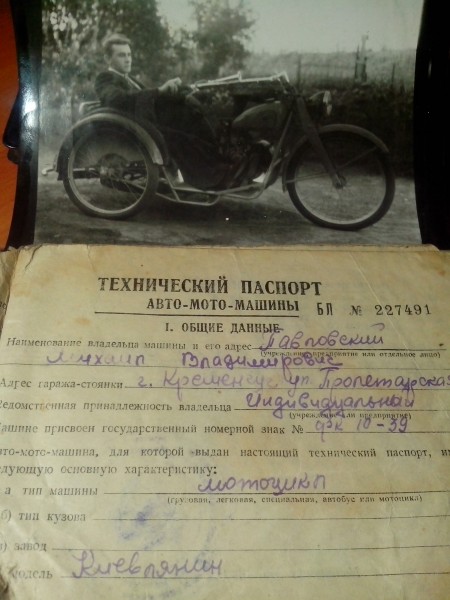 ТЕХНИЧЕСКИЙ ПАСПОРТ
АВТО-МОТО-МАШИНЫ БП № 227491
I. ОБЩИЕ ДАННЫЕ
Наименование владельца машины и его адрес Павловский
(учреждение, предприятие или отдельное лицо)
Михаил Владимирович
Адрес гаража-стоянки г. Кременчуг ул. Пролетарская
Ведомственная принадлежность владельца Индивидуальный
(учреждения или предприятия)
Машине присвоен государственный номерной знак № 10-39
авто-мото-машина, для которой выдан настоящий технический паспорт, им
следующую основную характеристику:
а тип машины мотоцикл
(грузовая, легковая, специальная, автобус или мотоцикл)
б) тип кузова
в) завод
модель Киевлянин